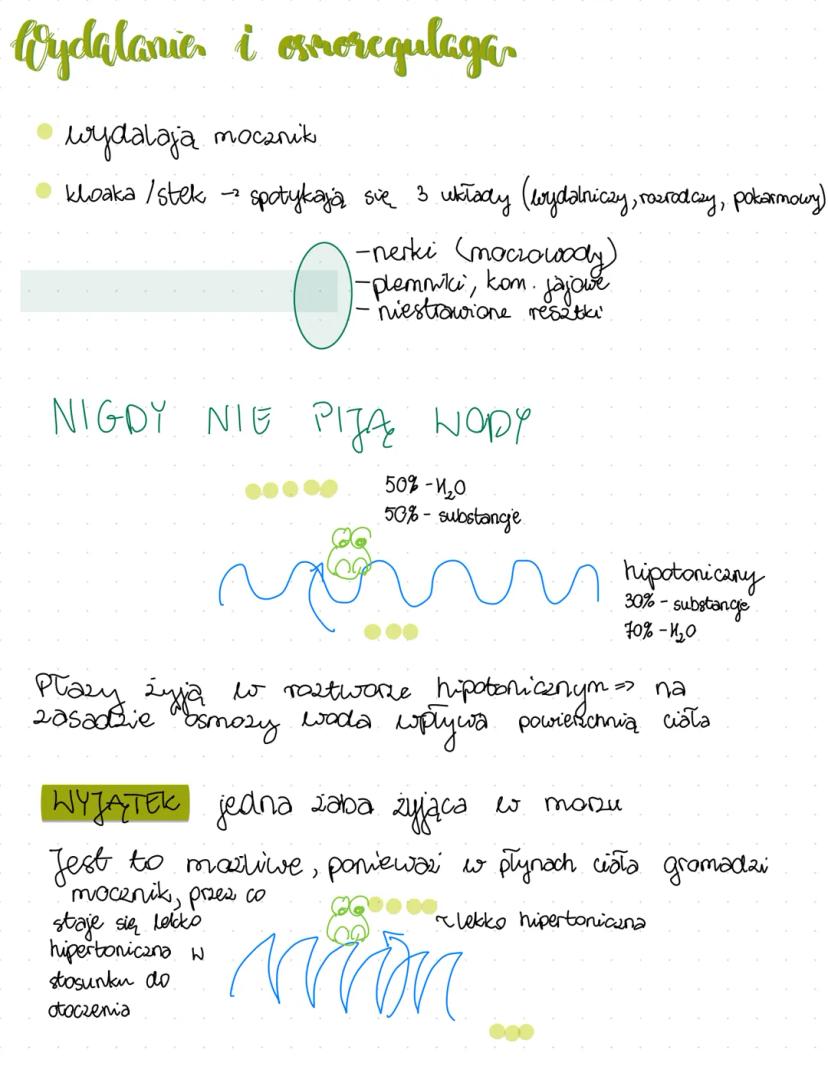 Wydalanie i osmoregulacja
wydalają mocznik
kloaka/stek → spotykają się 3 układy (wydalniczy, rozrodczy, pokarmowy)
- nerki (moczowody)
- plemniki, kom. jajowe
- niestrawione resztki
NIGDY NIE PIJĄ WODY
50% - H₂O
50% - substancje
hipotoniczny
30% - substancje
70% - H₂O
Płazy żyją w roztworze hipotonicznym => na
zasadzie osmozy woda wpływa powierzchnią ciała
WYJĄTEK jedna żaba żyjąca w morzu
Jest to możliwe, ponieważ w płynach ciała gromadzi
mocznik, przez co
staje się lekko
hipertoniczna w
stosunku do
otoczenia
~ lekko hipertoniczna